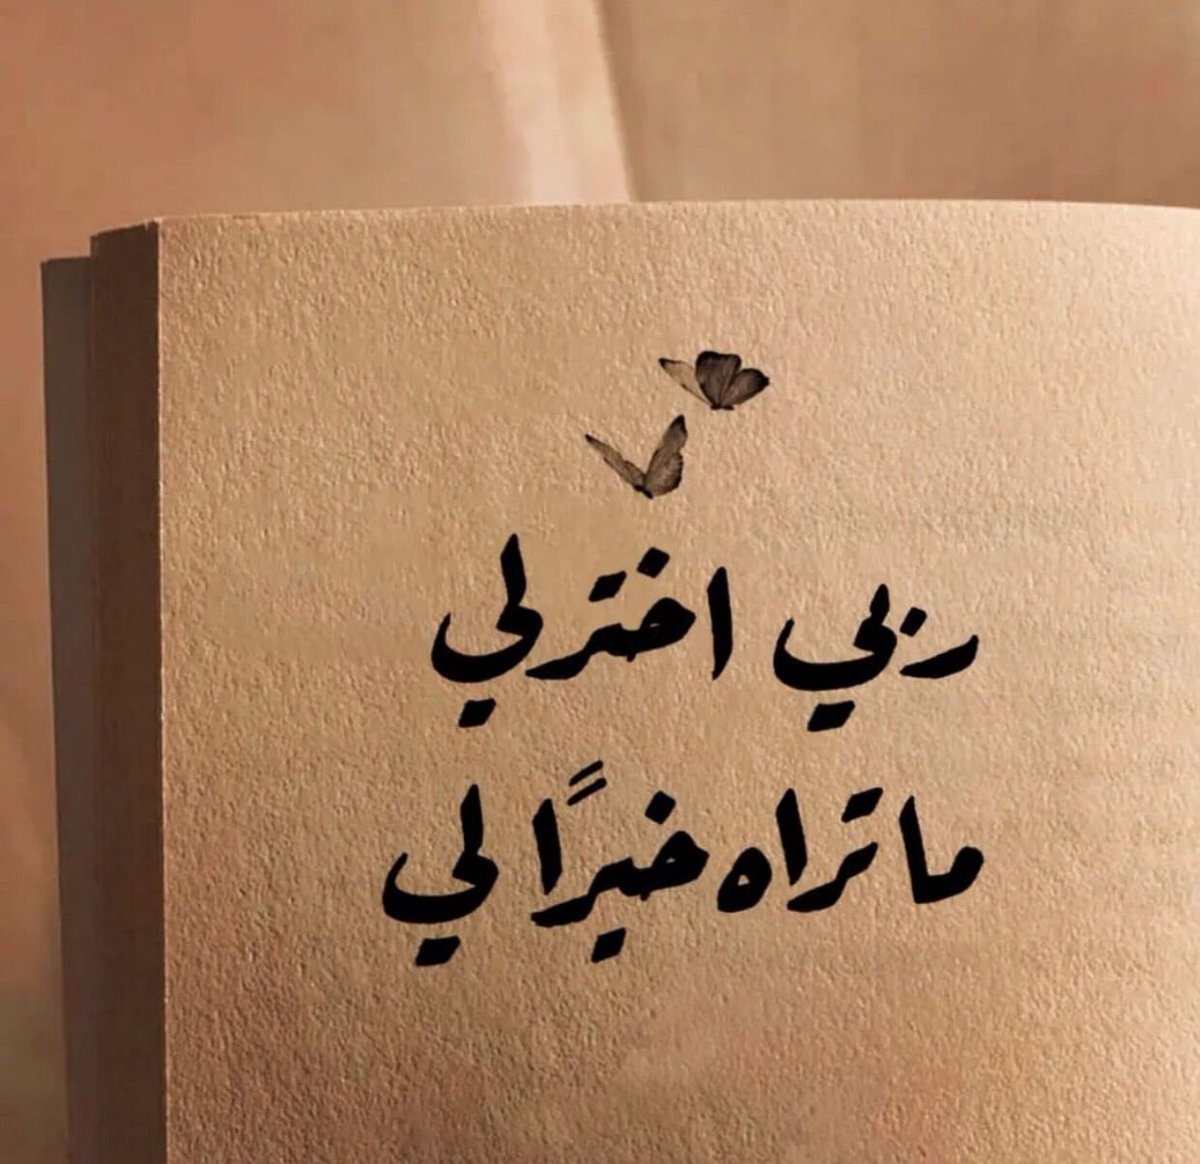 ربي اخترلي
ما تراه خيرًا لي